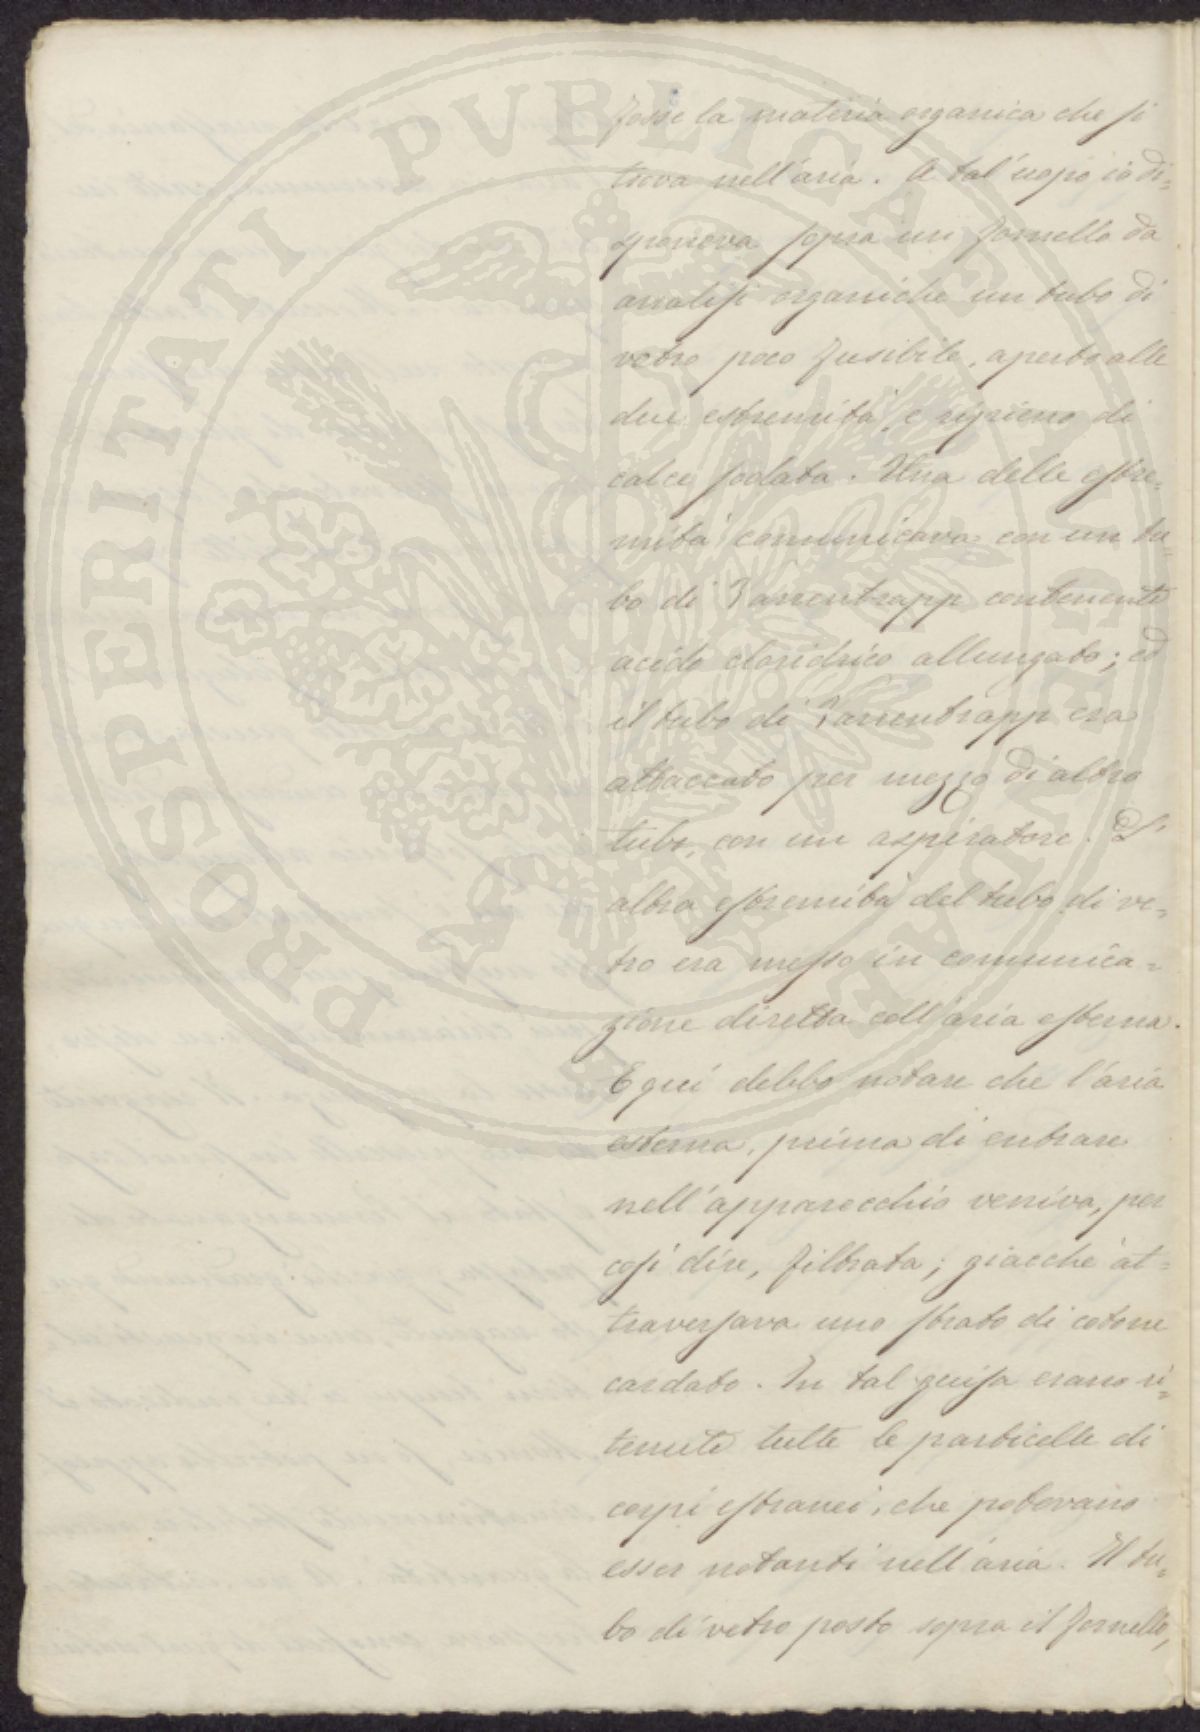 fosse la materia organica che si
trova nell'aria. A tal'uopo io di=
sponeva sopra un fornello da
analisi organiche un tubo di
vetro poco fusibile, aperto alle
due estremità, e ripieno di
calce sodata. Una delle estre=
mità comunicava con un tu=
bo di Varrentrapp contenente
acido cloridrico allungato; ed
il tubo di Varrentrapp era
attaccato per mezzo di altro
tubo, con un aspiratore. L'
altra estremità del tubo di ve=
tro era messo in comunica=
zione diretta coll'aria esterna.
E qui debbo notare che l'aria
esterna, prima di entrare
nell'apparecchio veniva, per
così dire, filtrata; giacchè at=
traversava uno strato di cotone
cardato. In tal guisa erano ri=
tenute tutte le particelle di
corpi estranei, che potevano
esser notanti nell'aria. Il tu=
bo di vetro posto sopra il fornello,
PROSPERITATI PUBLICAE AUGENDAE